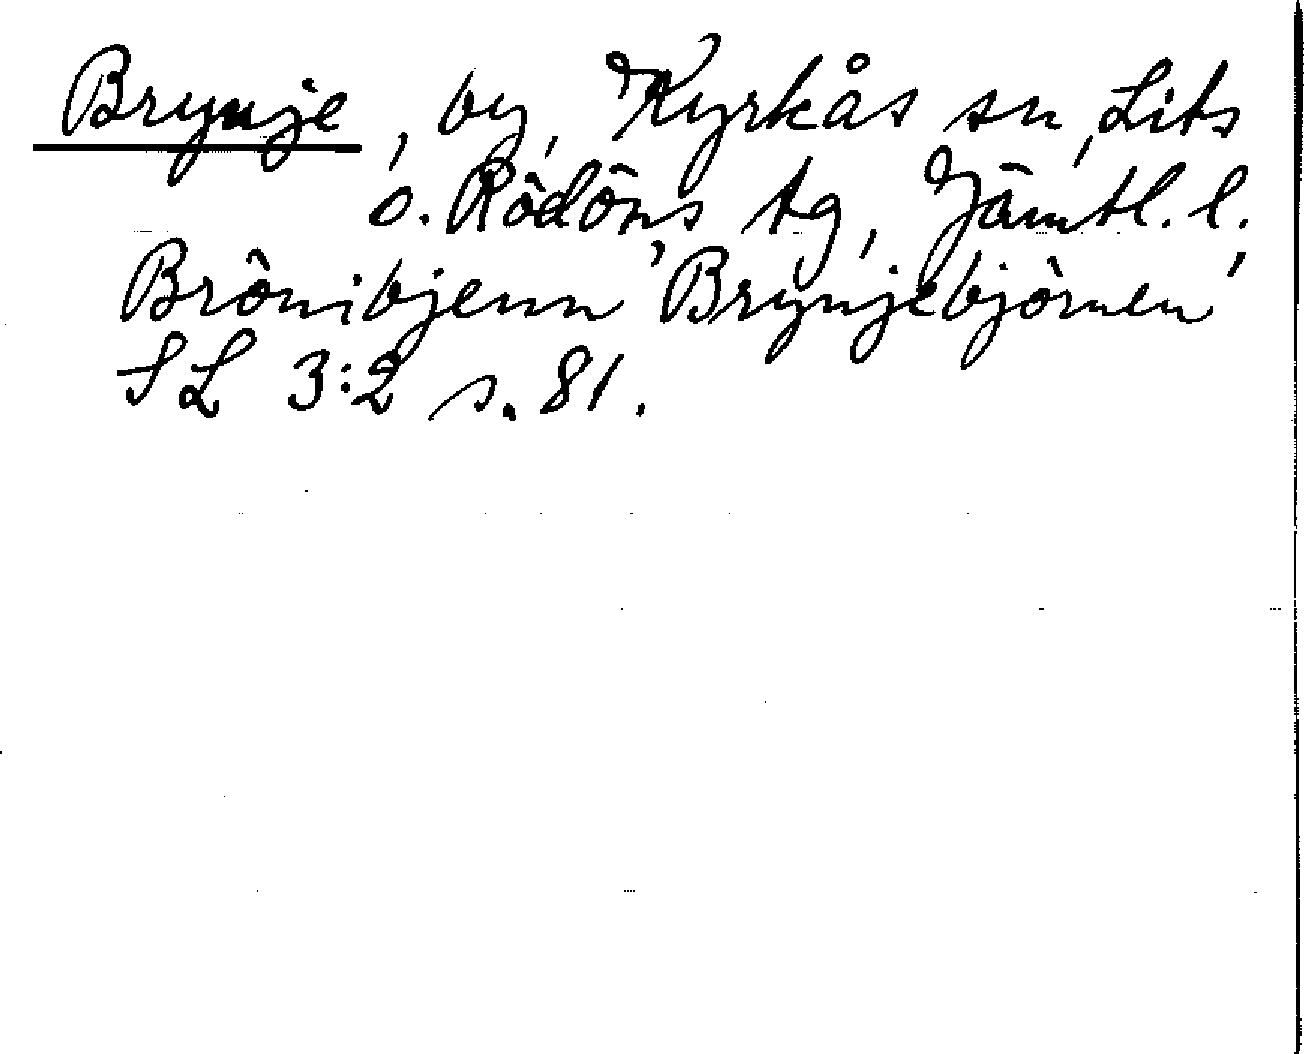 Brynje, by, Kyrkås sn, Lits
o. Rödöns tg, Jämtl. l.
Brönibjenn 'Brynjebjörnen'
SL 3:2 s. 81.